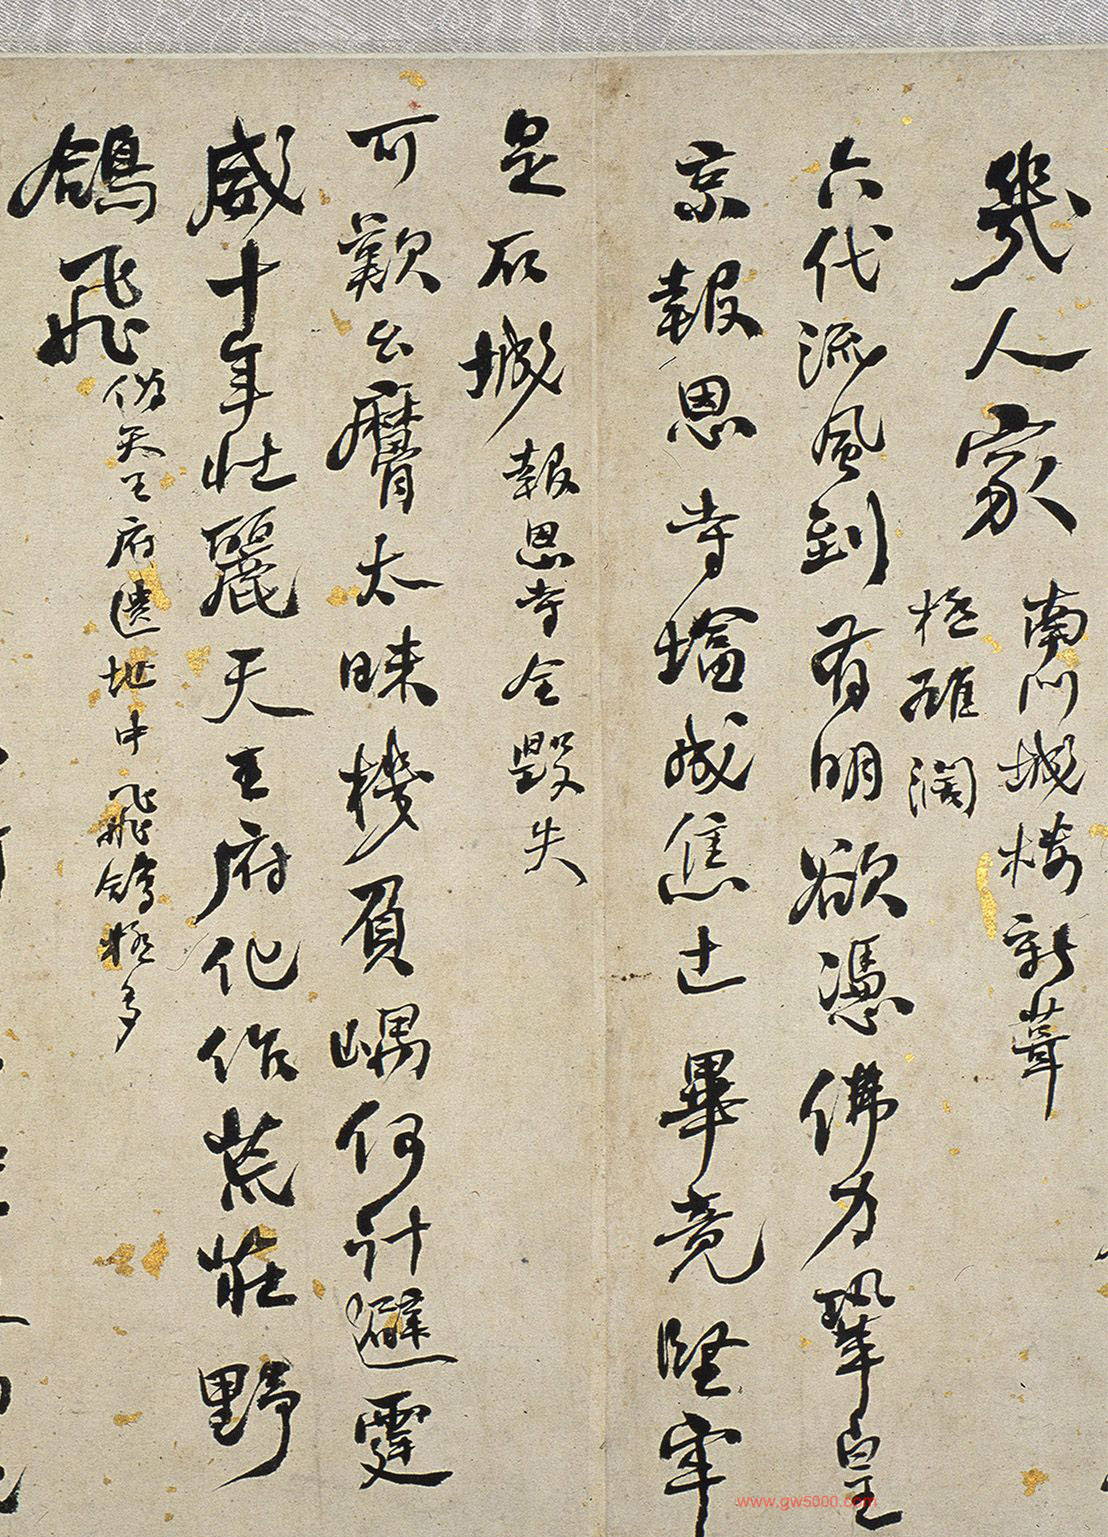 幾人家 南門城樓新葺
極雄闊
六代流風到有明欲憑佛力鞏皇
京報恩寺塔成焦土畢竟堅牢
是石城 報恩寺全毀失
可歎么麼太昧機負嵎何計避霆
威十年壯麗天王府化作荒莊野
鴿飛 偽天王府遺地中飛鴿極多
www.gw5000.com